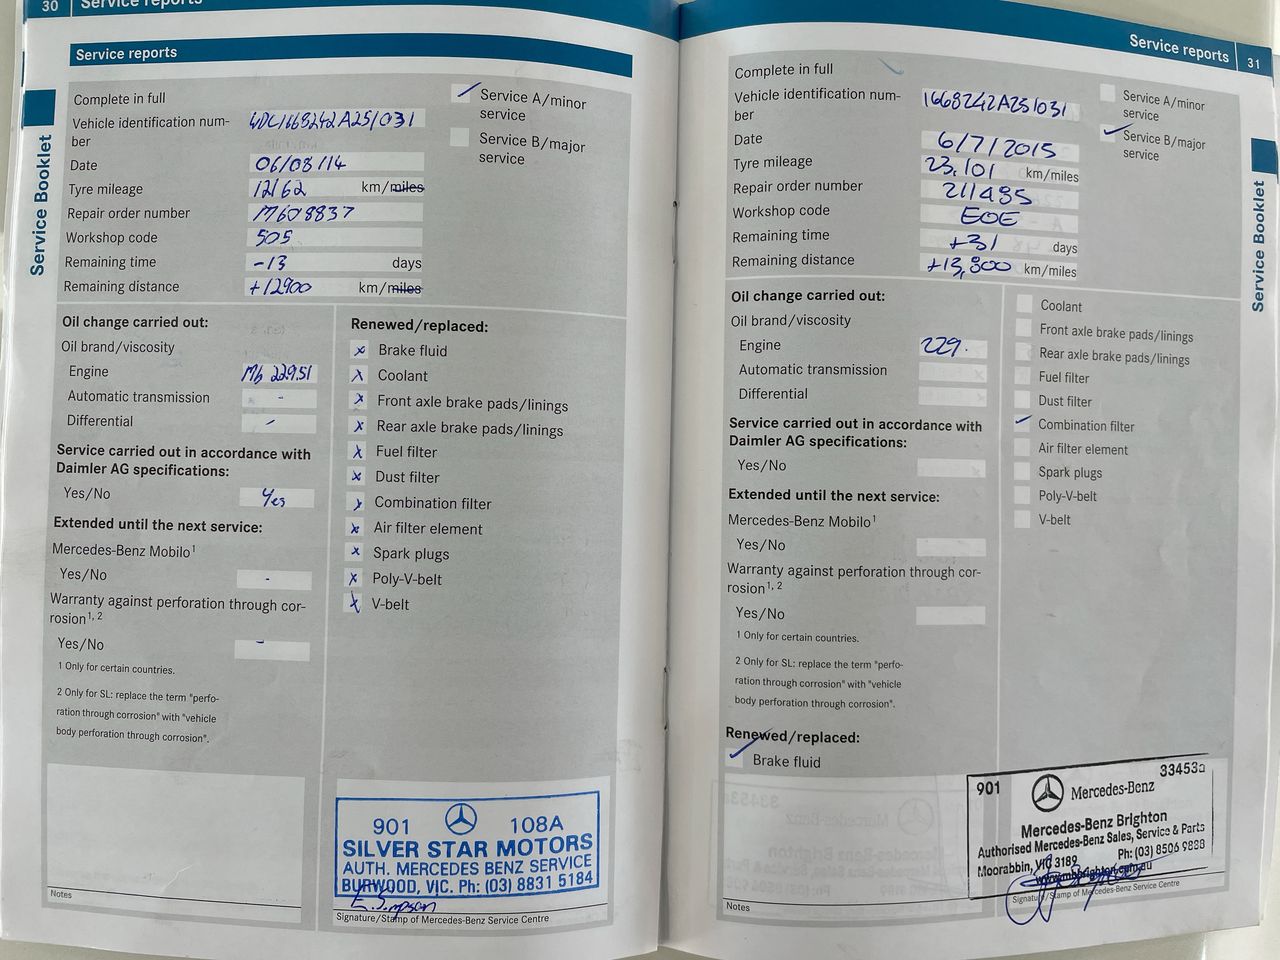 30 Service reports
Service reports
Service Booklet
Complete in full
Service A/minor service
Vehicle identification num-
ber
WDC1668242A251031
Service B/major service
Date 06/08/14
Tyre mileage 12162 km/miles
Repair order number M608837
Workshop code 505
Remaining time -13 days
Remaining distance +12900 km/miles
Oil change carried out:
Oil brand/viscosity
Engine Mb 229.51
Automatic transmission -
Differential -
Service carried out in accordance with
Daimler AG specifications:
Yes/No Yes
Extended until the next service:
Mercedes-Benz Mobilo1
Yes/No -
Warranty against perforation through cor-
rosion1, 2
Yes/No -
1 Only for certain countries.
2 Only for SL: replace the term "perfo-
ration through corrosion" with "vehicle
body perforation through corrosion".
Renewed/replaced:
x Brake fluid
x Coolant
x Front axle brake pads/linings
x Rear axle brake pads/linings
x Fuel filter
x Dust filter
x Combination filter
x Air filter element
x Spark plugs
x Poly-V-belt
x V-belt
Notes
901 108A
SILVER STAR MOTORS
AUTH. MERCEDES BENZ SERVICE
BURWOOD, VIC. Ph: (03) 8831 5184
E. Simpson
Signature/Stamp of Mercedes-Benz Service Centre
Service reports 31
Service Booklet
Complete in full
Service A/minor
service
Vehicle identification num-
ber
1668242A251031
Service B/major
service
Date 6/7/2015
Tyre mileage 23,101 km/miles
Repair order number 211485
Workshop code EOE
Remaining time +31 days
Remaining distance +13,800 km/miles
Oil change carried out:
Oil brand/viscosity
Engine 229.
Automatic transmission
Differential
Service carried out in accordance with
Daimler AG specifications:
Yes/No
Extended until the next service:
Mercedes-Benz Mobilo1
Yes/No
Warranty against perforation through cor-
rosion1, 2
Yes/No
1 Only for certain countries.
2 Only for SL: replace the term "perfo-
ration through corrosion" with "vehicle
body perforation through corrosion".
Renewed/replaced:
Brake fluid
Coolant
Front axle brake pads/linings
Rear axle brake pads/linings
Fuel filter
Dust filter
Combination filter
Air filter element
Spark plugs
Poly-V-belt
V-belt
Notes
901 33453a
Mercedes-Benz
Mercedes-Benz Brighton
Authorised Mercedes-Benz Sales, Service & Parts
Moorabbin, VIC 3189 Ph: (03) 8506 9838
www.mbbrighton.com.au
Signature/Stamp of Mercedes-Benz Service Centre